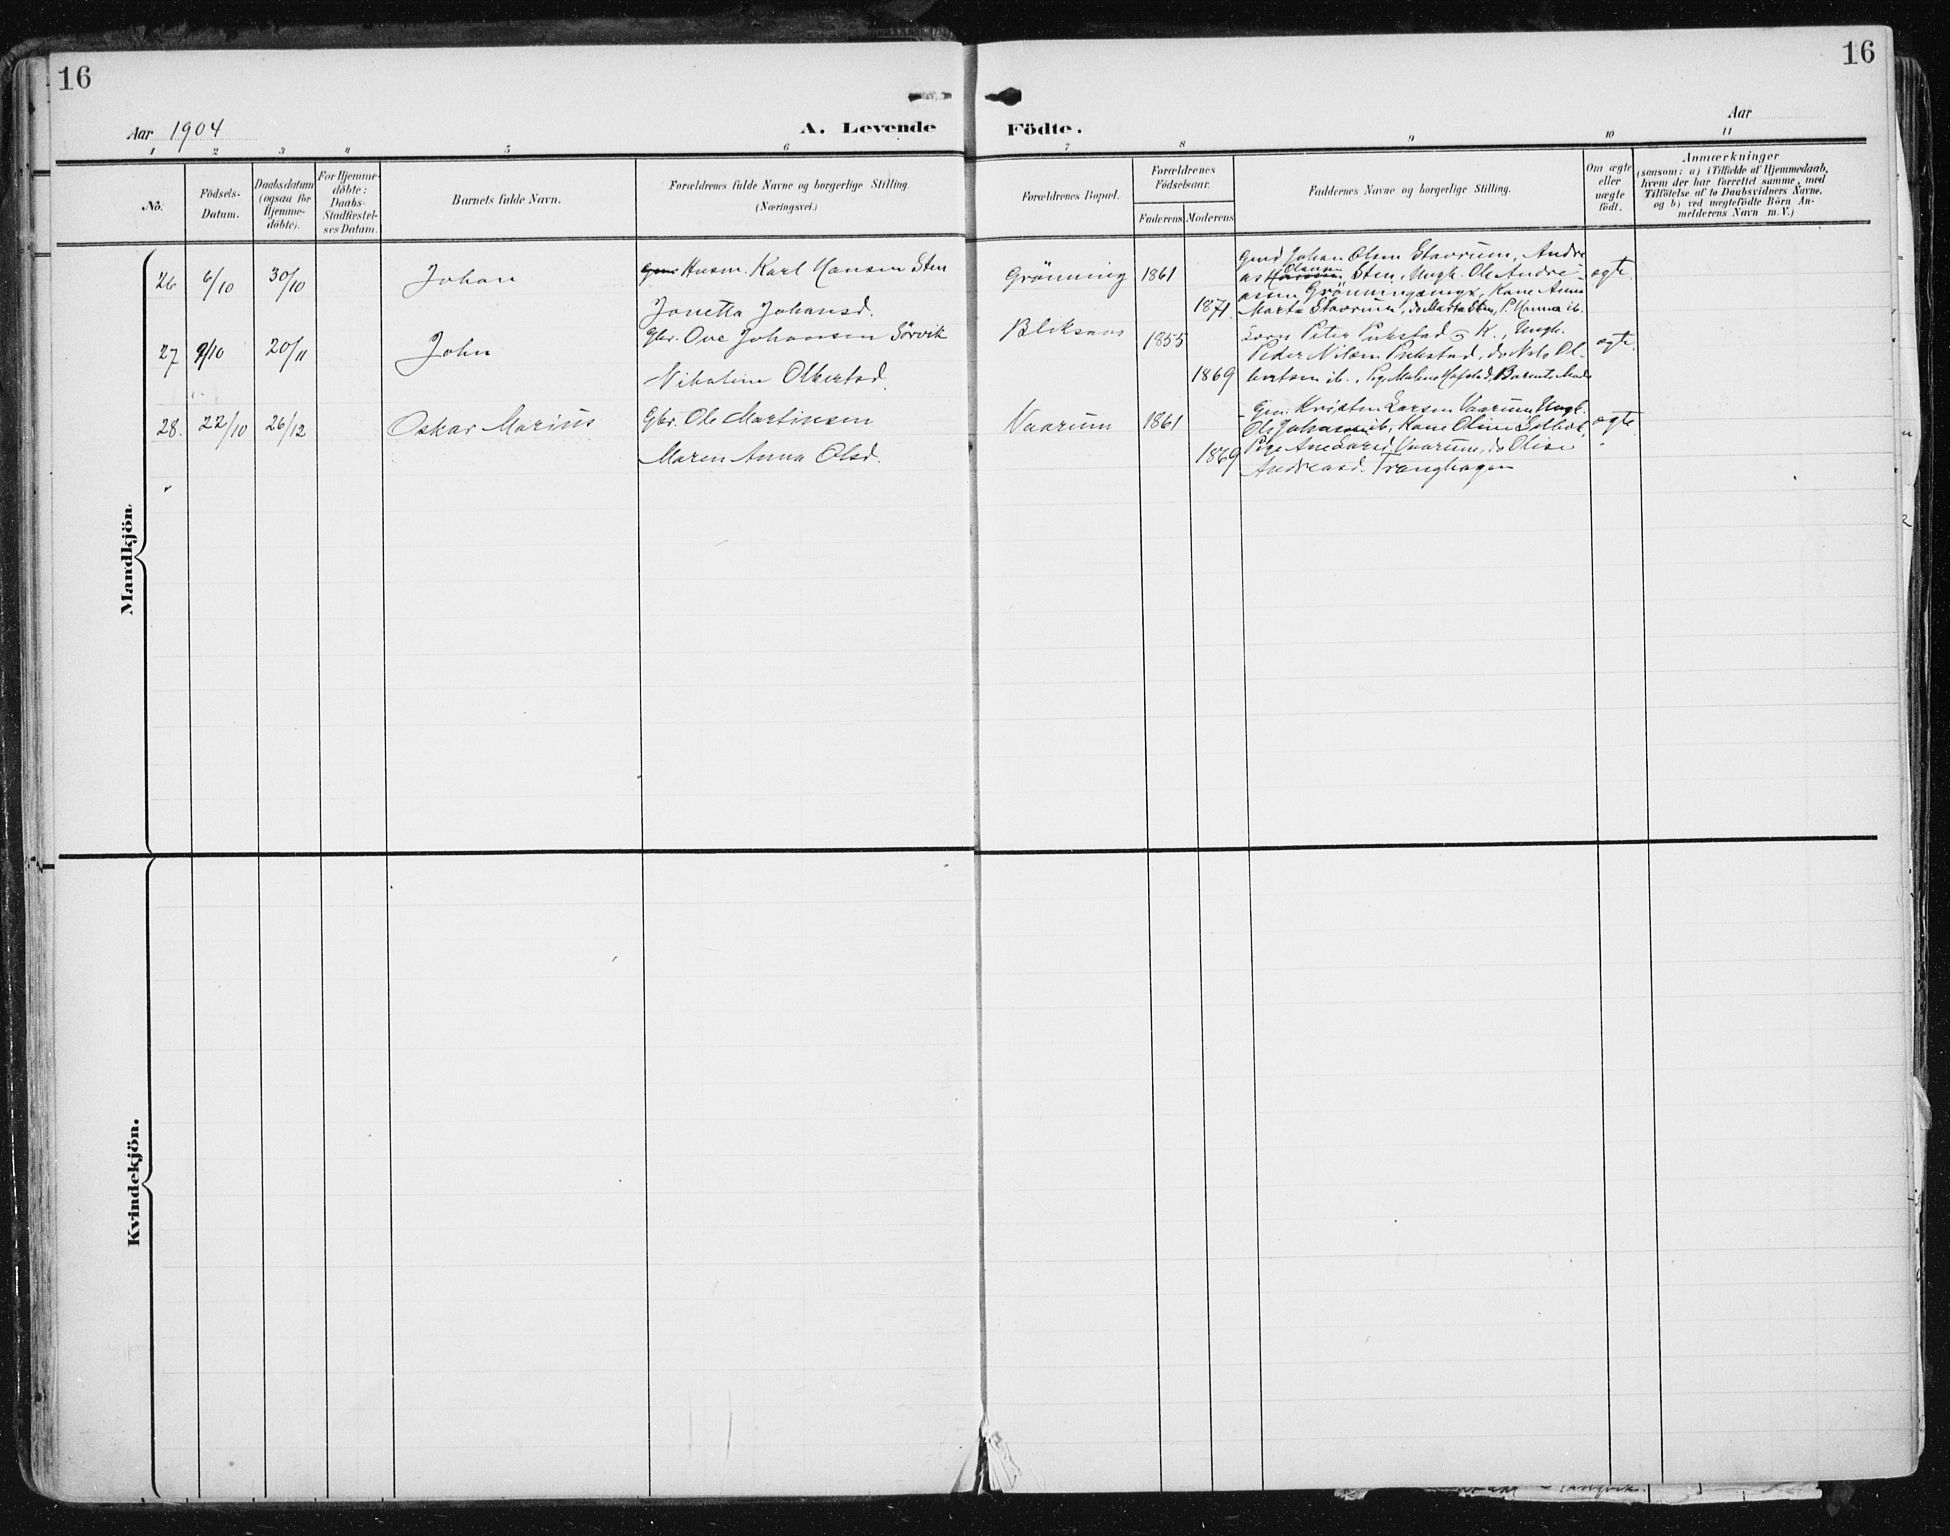 16
16
Aar 1904
A. Levende
Födte.
Aar
1 2 3 4 5 6 7 8 9 10 11
No.
Födsels-
Datum.
Daabsdatum
(ogsaa for
Hjemme-
döbte).
For Hjemme-
döbte:
Daabs-
Stadfæstel-
ses Datum.
Barnets fulde Navn.
Forældrenes fulde Navne og borgerlige Stilling.
(Næringsvei.)
Forældrenes Bopæl.
Forældrenes
Födselsaar.
Faderens Moderens
Faddernes Navne og borgerlige Stilling.
Om ægte
eller
uægte
født.
Anmærkninger
(saasom: a) i Tilfælde af Hjemmedaab,
hvem der har forrettet samme, med
Tilföielse af to Daabsvidners Navne,
og b) ved uægtefödte Börn An-
melderens Navn m. V.)
Mandkjön.
26 6/10 30/10 Johan Husm. Karl Hansen Sten Grönning 1861 ægte.
Jonetta Johansd. 1871
Gmd Johan Olsen Stavrum, Andre
as Sten, Ungk. Ole Andre-
assen Kone Anne
Marta Stavrum, do Marta Sten, P. Hanna ib.
27 9/10 20/11 John Gbr. Ove Johansen Sørvik 1855 ægte.
Nikoline Olbertsd. 1869
Peter K., Ungk.
Peder Nilsen do Ol-
bertsen ib., Pige
28. 22/10 26/12 Oskar Marius Gbr. Ole Martinsen Vaarum 1861 ægte.
Maren Anna Olsd. 1869
Gm. Kristen Larsen Vaarum, Ungk.
Ole Johansen ib, Kone Oline
Pige Ane Larsd. Vaarum, do Olise
Andreasd. Tranghagen
Kvindekjön.